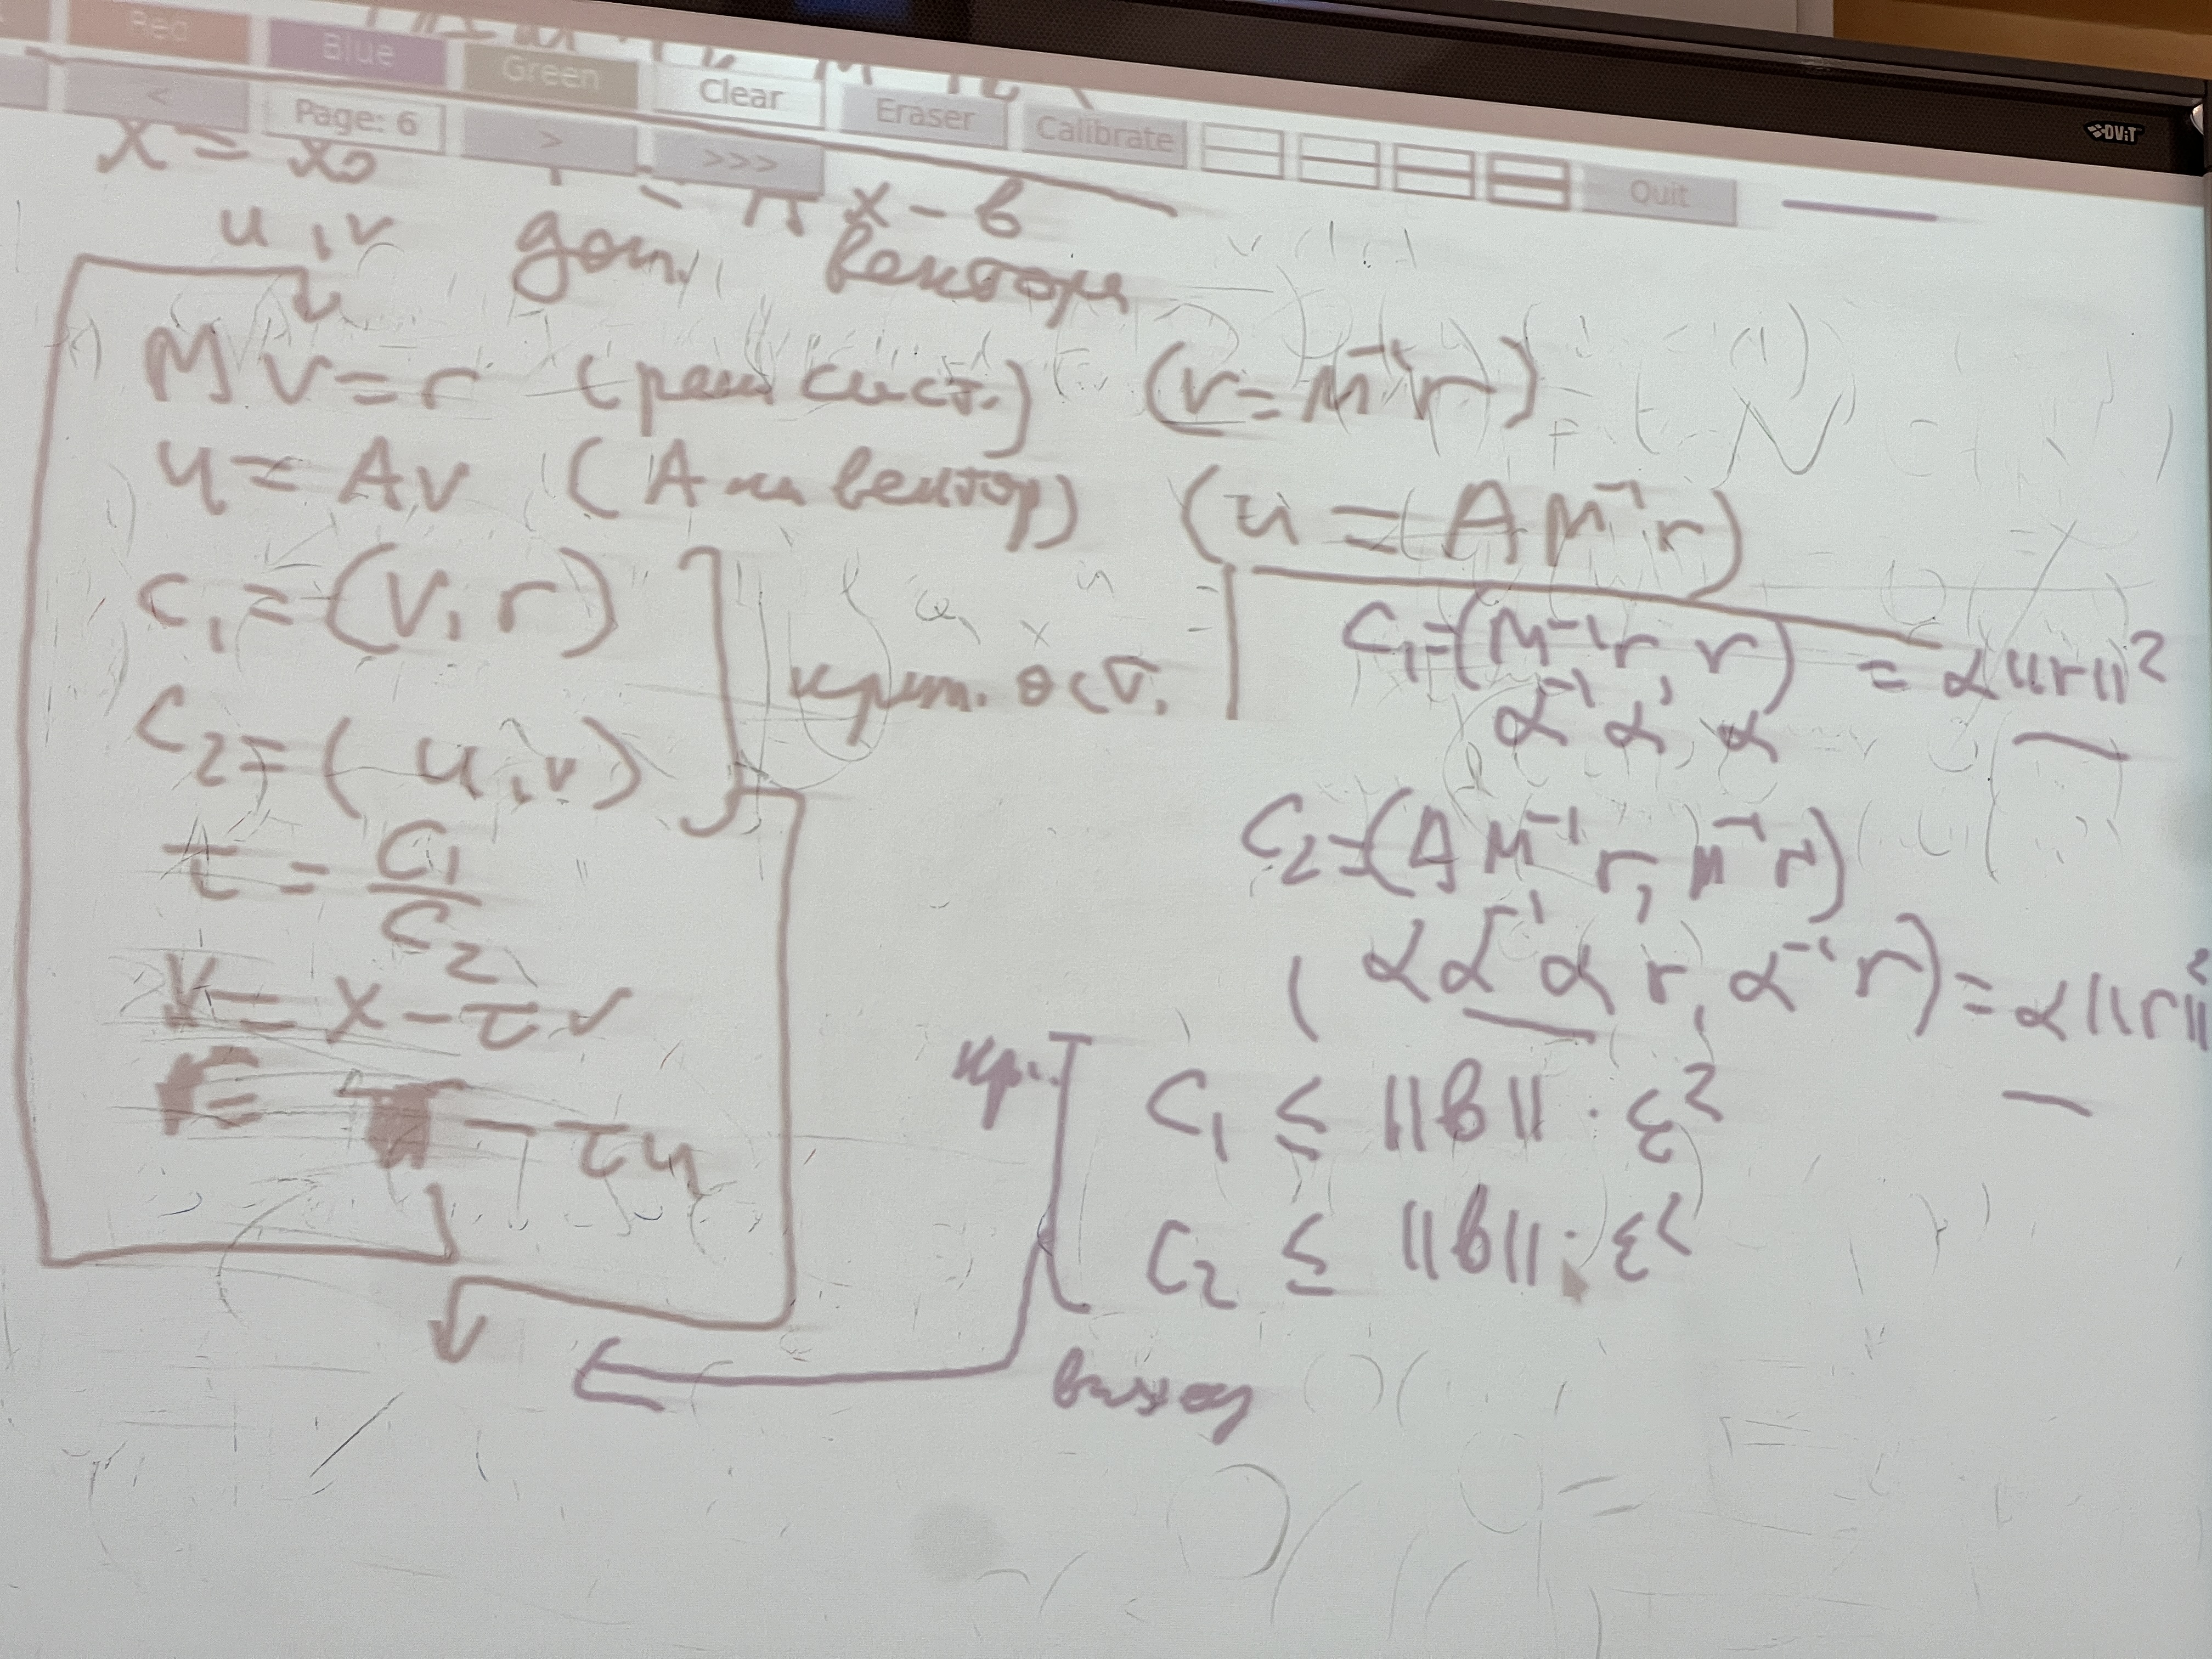 Red Blue Green Clear Eraser Calibrate Quit
< Page: 6 > >>>
DViT
x = x₀ r = A x - b
u, v доп. вектора
M v = r (реш сист.) (v = M⁻¹ r)
u = A v (A на вектор) (u = A M⁻¹ r)
c₁ = (v, r)
крит. ост.
c₂ = (u, v)
τ = c₁ / c₂
x = x - τ v
r = r - τ u
c₁ = (M⁻¹ r, r) = α ||r||²
α⁻¹ α, α
c₂ = (A M⁻¹ r, M⁻¹ r)
(α α⁻¹ α r, α⁻¹ r) = α ||r||²
кр.
c₁ ≤ ||b|| · ε²
c₂ ≤ ||b|| · ε²
выход